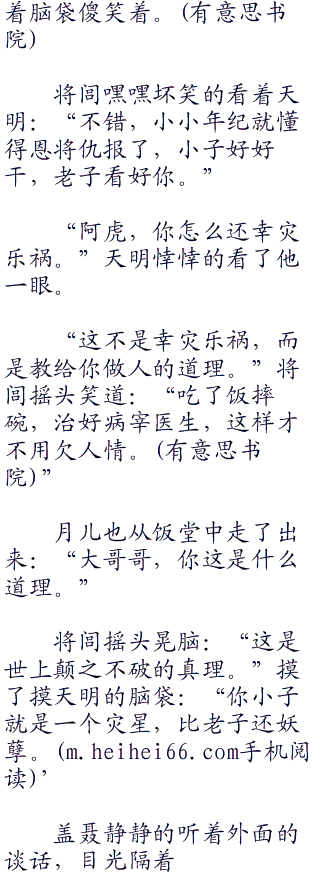 着脑袋傻笑着。(有意思书
院)
将闾嘿嘿坏笑的看着天
明：“不错，小小年纪就懂
得恩将仇报了，小子好好
干，老子看好你。”
“阿虎，你怎么还幸灾
乐祸。”天明悻悻的看了他
一眼。
“这不是幸灾乐祸，而
是教给你做人的道理。”将
闾摇头笑道：“吃了饭摔
碗，治好病宰医生，这样才
不用欠人情。(有意思书
院)”
月儿也从饭堂中走了出
来：“大哥哥，你这是什么
道理。”
将闾摇头晃脑：“这是
世上颠之不破的真理。”摸
了摸天明的脑袋：“你小子
就是一个灾星，比老子还妖
孽。(m.heihei66.com手机阅
读)’
盖聂静静的听着外面的
谈话，目光隔着